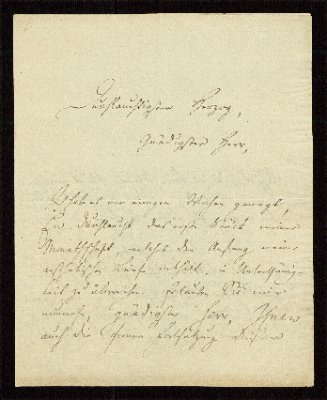 Durchlauchtigster Herzog,
Gnädigster Herr,
Ich habe es vor einigen Wochen gewagt,
Eur. Durchlaucht das erste Stück meiner
Monatschrift, welches den Anfang meiner
ästhetischen Briefe enthält, in Unterthänigkeit
zu überreichen. Erlauben Sie mir
nunmehr, gnädigster Herr, Ihnen
auch die fernere Fortsetzung dieser